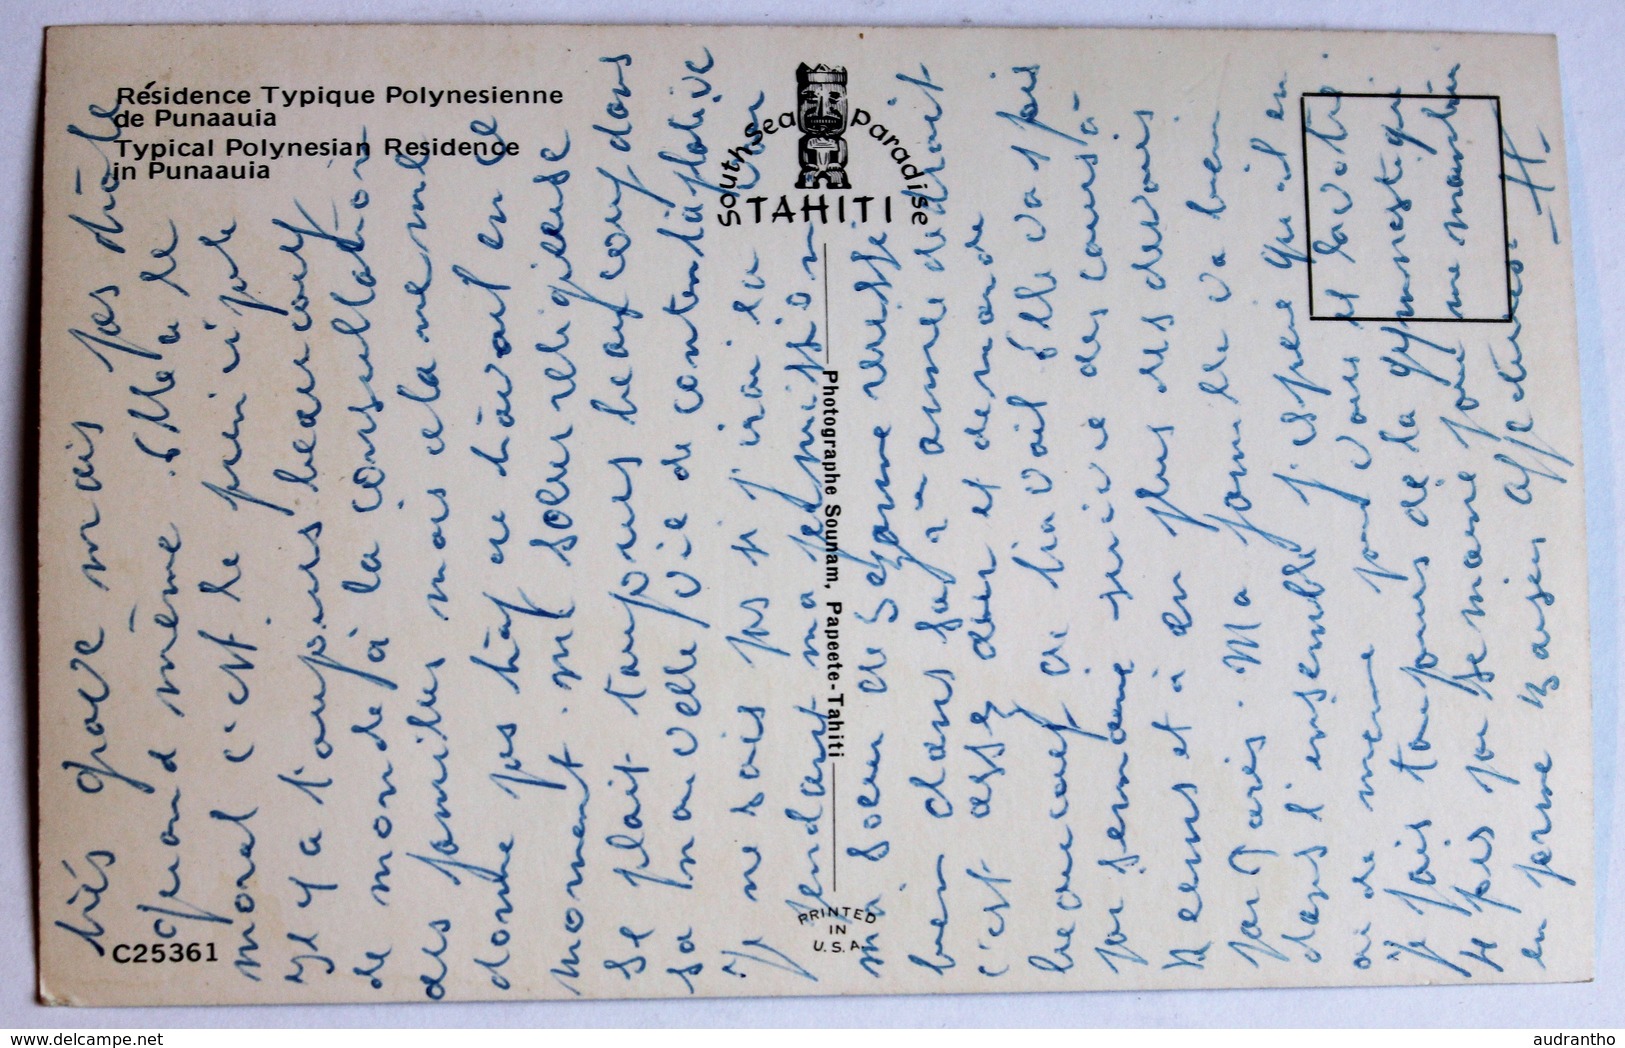 Résidence Typique Polynesienne
de Punaauia
Typical Polynesian Residence
in Punaauia
C25361
South Sea Paradise
TAHITI
Photographe Sounam, Papeete-Tahiti
PRINTED
IN
U.S.A.
très grave mais pas drôle
quand même. Elle a le
moral c'est le principal
Il y a toujours beaucoup
de monde à la consultation
des familles mais cela me
donne pas trop de travail en ce
moment. Ma soeur religieuse
se plait toujours beaucoup dans
sa nouvelle vie de contemplative
Je ne sais pas si j'irai la voir
pendant ma permission
ma soeur de Sézanne réussit
bien dans sa année de droit
c'est assez dur et demande
beaucoup de travail Elle va 1 fois
par semaine suivre des cours à
Reims et a en plus des devoirs
par Paris. Ma famille va bien
dans l'ensemble j'espère qu'il en
ai de meme pour vous et la votre
Je fais toujours de la gymnastique
4 fois par semaine pour me maintenir
en forme Baisers affectueux